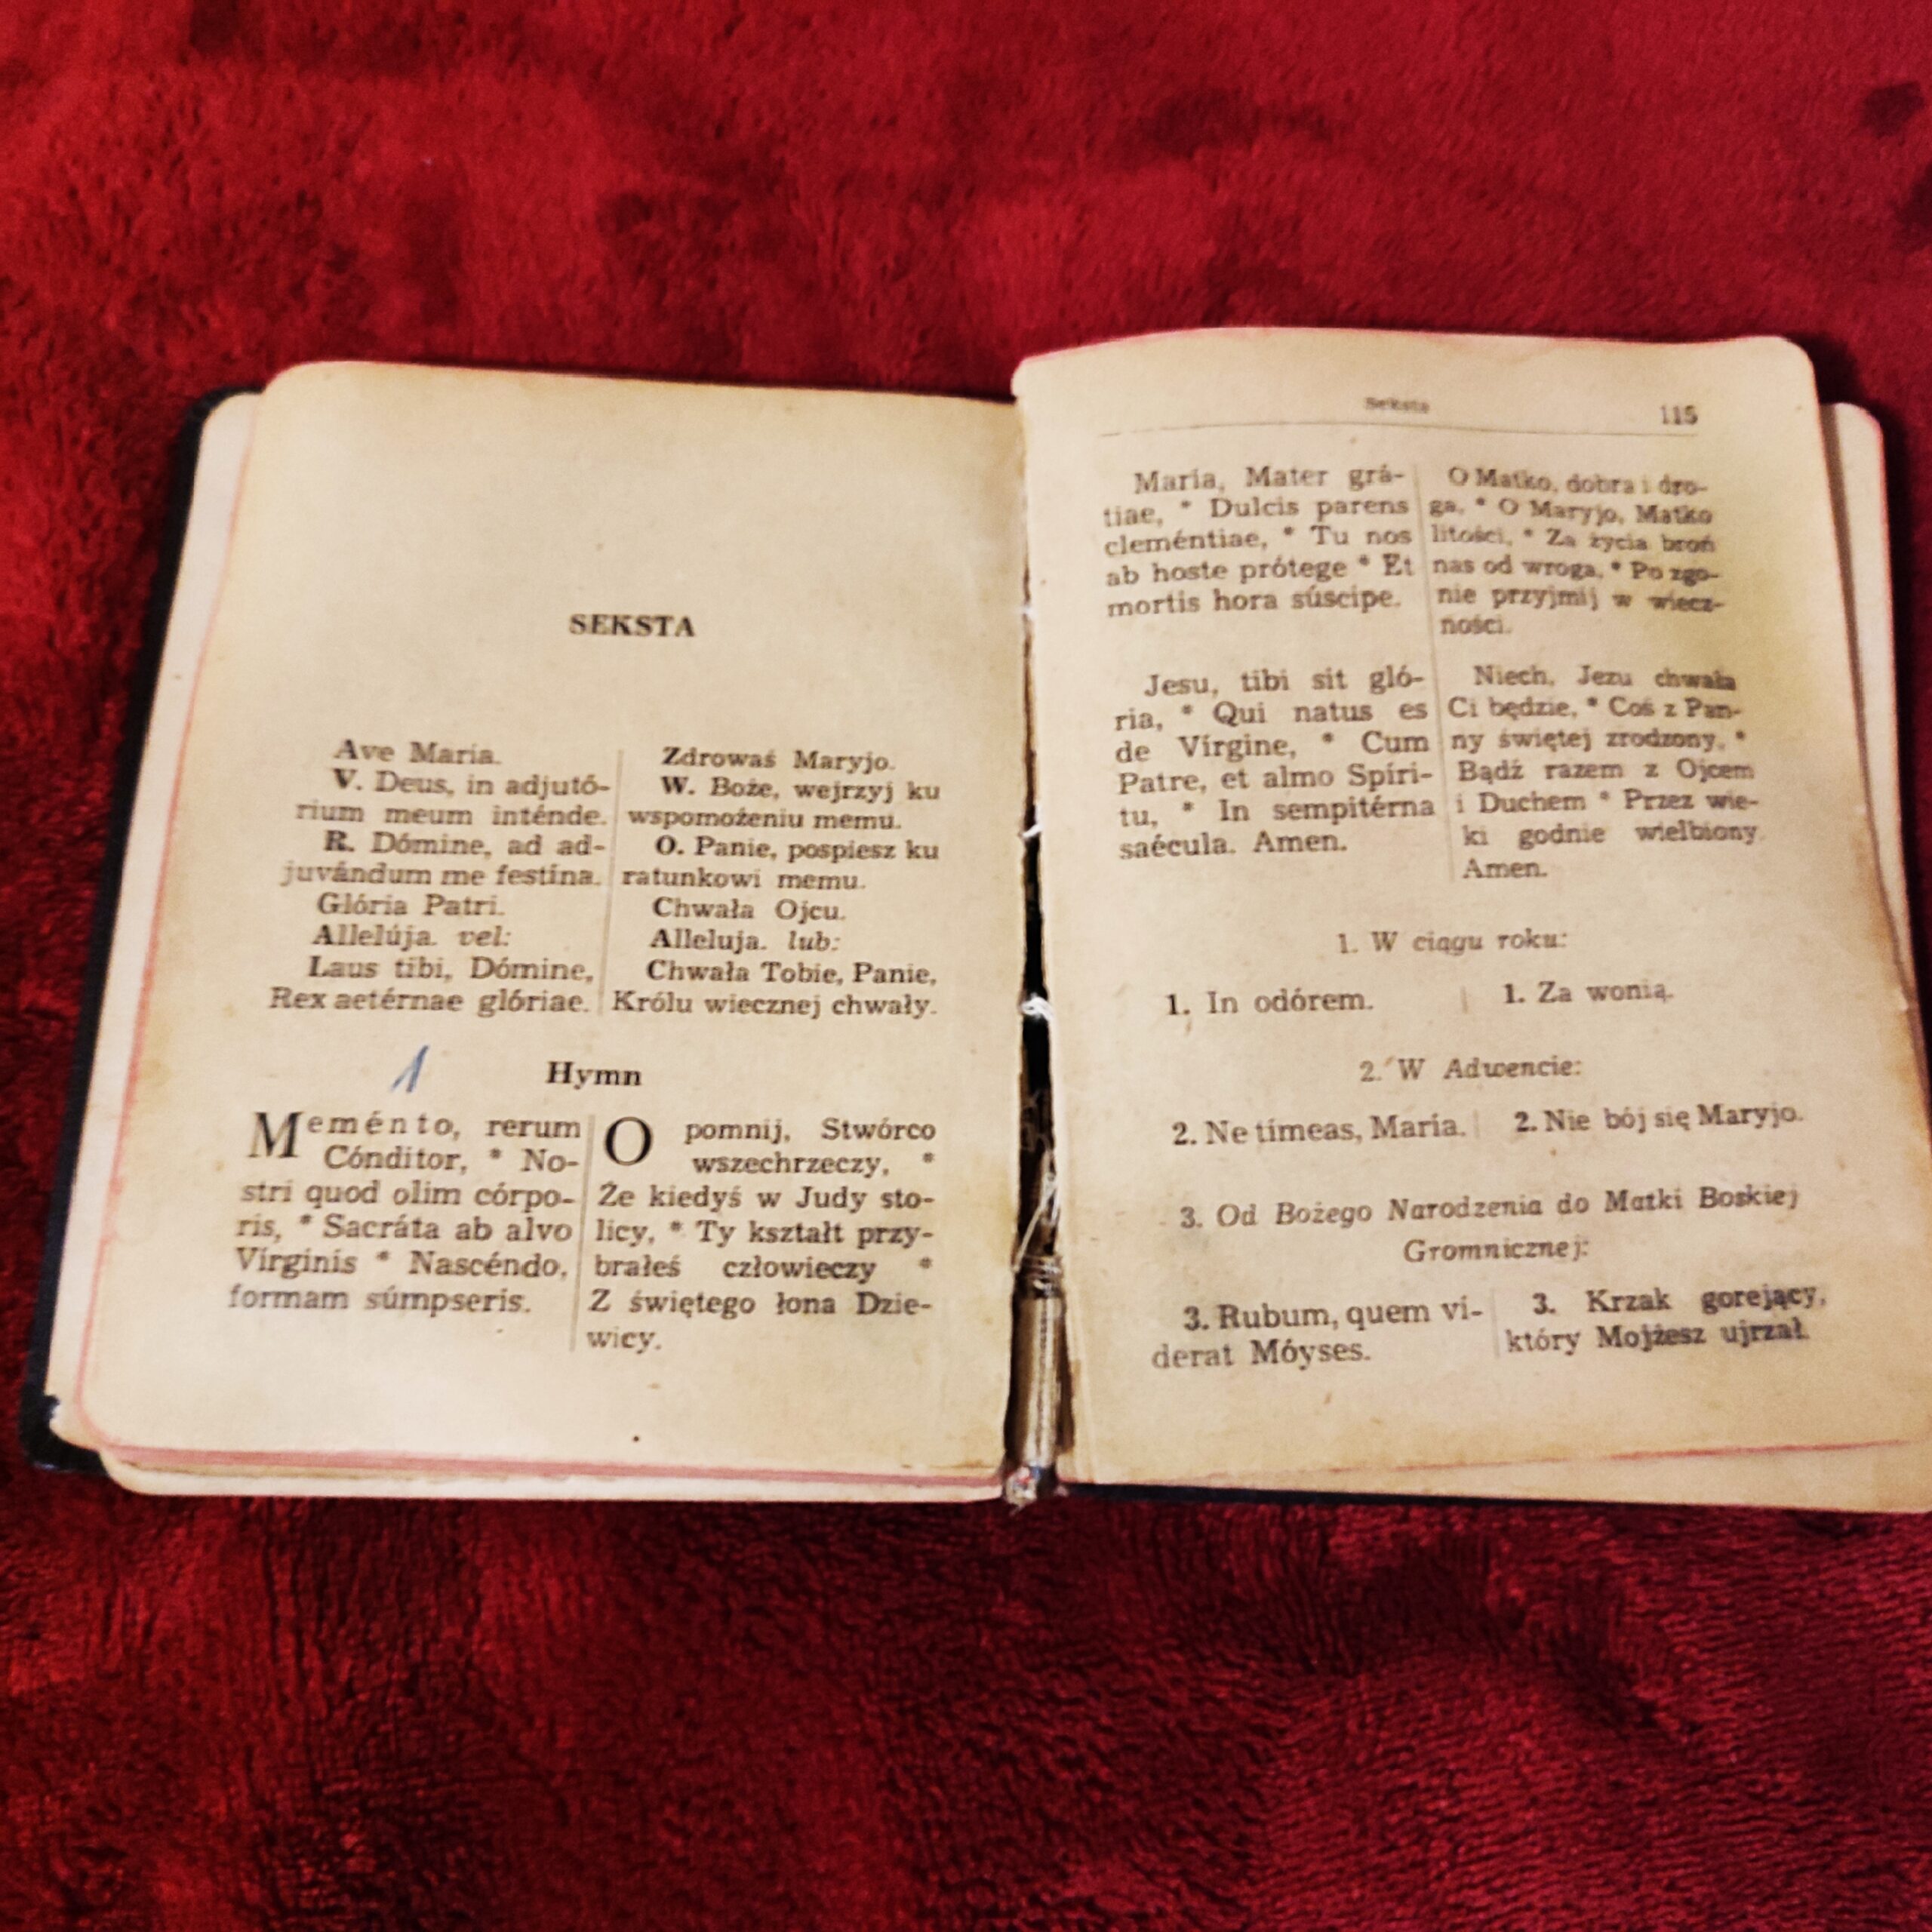 SEKSTA
Ave María.
V. Deus, in adjutó-
rium meum inténde.
R. Dómine, ad ad-
juvándum me festína.
Glória Patri.
Allelúja. vel:
Laus tibi, Dómine,
Rex aetérnae glóriae.
Zdrowaś Maryjo.
W. Boże, wejrzyj ku
wspomożeniu memu.
O. Panie, pospiesz ku
ratunkowi memu.
Chwała Ojcu.
Alleluja. lub:
Chwała Tobie, Panie,
Królu wiecznej chwały.
1
Hymn
Meménto, rerum
Cónditor, * No-
stri quod olim córpo-
ris, * Sacráta ab alvo
Vírginis * Nascéndo,
formam súmpseris.
O pomnij, Stwórco
wszechrzeczy, *
Że kiedyś w Judy sto-
licy, * Ty kształt przy-
brałeś człowieczy *
Z świętego łona Dzie-
wicy.
Seksta 115
María, Mater grá-
tiae, * Dulcis parens
cleméntiae, * Tu nos
ab hoste prótege * Et
mortis hora súscipe.
O Matko, dobra i dro-
ga, * O Maryjo, Matko
litości, * Za życia broń
nas od wroga, * Po zgo-
nie przyjmij w wiecz-
ności.
Jesu, tibi sit gló-
ria, * Qui natus es
de Vírgine, * Cum
Patre, et almo Spíri-
tu, * In sempitérna
saécula. Amen.
Niech, Jezu chwała
Ci będzie, * Coś z Pan-
ny świętej zrodzony, *
Bądź razem z Ojcem
i Duchem * Przez wie-
ki godnie wielbiony.
Amen.
1. W ciągu roku:
1. In odórem.
1. Za wonią.
2. W Adwencie:
2. Ne tímeas, María.
2. Nie bój się Maryjo.
3. Od Bożego Narodzenia do Matki Boskiej
Gromnicznej:
3. Rubum, quem ví-
derat Móyses.
3. Krzak gorejący,
który Mojżesz ujrzał.